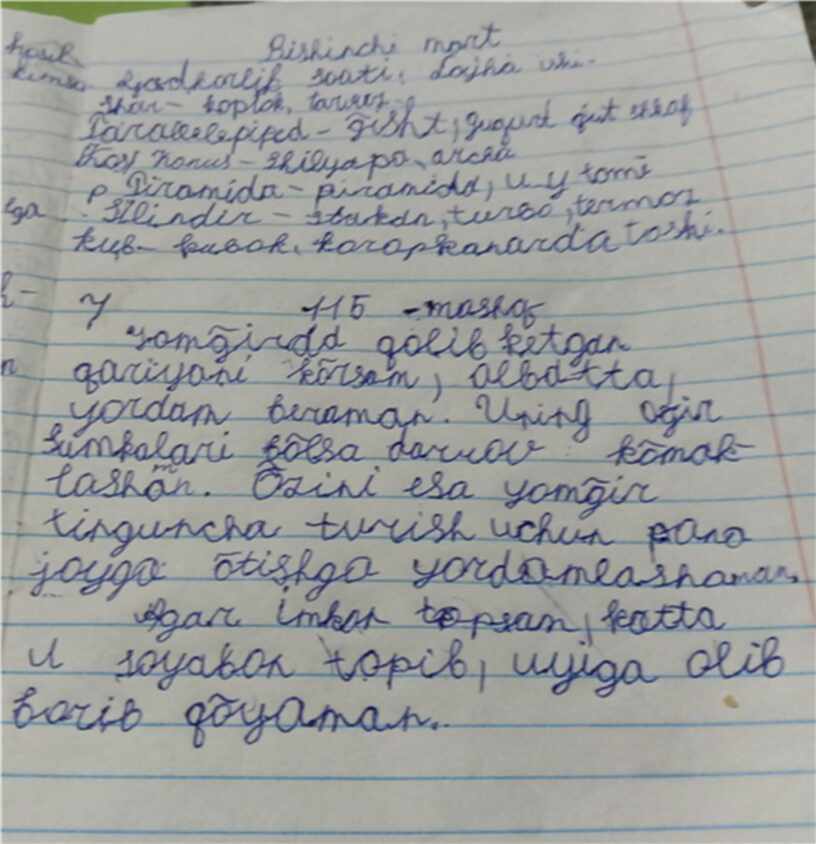 Bishinchi mart
soati,
shar - koptok, tarvuz.
Paralelepiped - ğisht, gugurt
Konus - shlyapa, archa
Piramida - piramida, uy tomi
Silindir - stakan, turba, termos
kub - kubok, toshi.
115 - mashq
yomğirda qolib ketgan
qariyani kõrsam, albatta,
yordam beraman. Uning oğir
sumkalari bõlsa darrov kõmak-
lashman. Õzini esa yomğir
tinguncha turish uchun pana
joyga õtishga yordamlashaman.
Agar imkon topsam, katta
soyabon topib, uyiga olib
borib qõyaman.